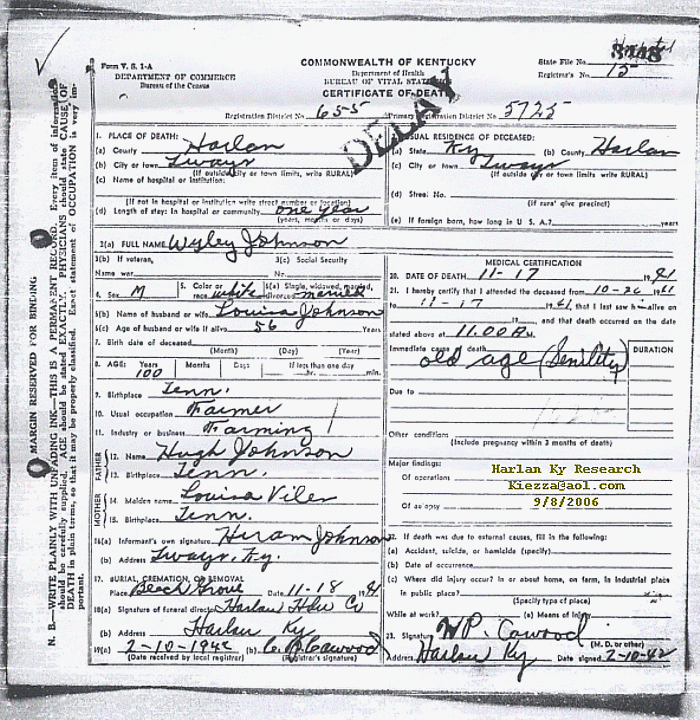 Form V. S. 1-A
DEPARTMENT OF COMMERCE
Bureau of the Census
COMMONWEALTH OF KENTUCKY
Department of Health
BUREAU OF VITAL STATISTICS
CERTIFICATE OF DEATH
State File No.
Registrar's No. 15
DELAY
Registration District No. 655 Primary Registration District No. 5725
MARGIN RESERVED FOR BINDING
N. B.—WRITE PLAINLY WITH UNFADING INK—THIS IS A PERMANENT RECORD. Every item of information
should be carefully supplied. AGE should be stated EXACTLY. PHYSICIANS should state CAUSE OF
DEATH in plain terms, so that it may be properly classified. Exact statement of OCCUPATION is very im-
portant.
1. PLACE OF DEATH:
(a) County Harlan
(b) City or town
(If outside city or town limits, write RURAL)
(c) Name of hospital or institution:
(If not in hospital or institution write street number or location)
(d) Length of stay: In hospital or community one year
(years, months or days)
2. USUAL RESIDENCE OF DECEASED:
(a) State Ky (b) County Harlan
(c) City or town
(If outside city or town limits, write RURAL)
(d) Street No.
(If rural give precinct)
(e) If foreign born, how long in U. S. A.? years
3(a) FULL NAME Wyley Johnson
3(b) If veteran, 3(c) Social Security
Name war No.
4. Sex M 5. Color or race white 6(a) Single, widowed, married, divorced married
6(b) Name of husband or wife Louisa Johnson
6(c) Age of husband or wife if alive 56 Years
7. Birth date of deceased
(Month) (Day) (Year)
8. AGE: Years Months Days If less than one day
100 hr. min.
9. Birthplace Tenn.
10. Usual occupation Farmer
11. Industry or business Farming
FATHER
12. Name Hugh Johnson
13. Birthplace Tenn.
MOTHER
14. Maiden name Louisa Viles
15. Birthplace Tenn.
16(a) Informant's own signature Hiram Johnson
(b) Address Ky.
17. BURIAL, CREMATION, OR REMOVAL
Place Beech Grove Date 11-18 1941
18(a) Signature of funeral director Harlan Co
(b) Address Harlan Ky
19(a) 2-10-1942 (b) Cawood
(Date received by local registrar) (Registrar's signature)
MEDICAL CERTIFICATION
20. DATE OF DEATH 11-17 1941
21. I hereby certify that I attended the deceased from 10-26 1941
to 11-17 1941, that I last saw him alive on
19 and that death occurred on the date
stated above at 11.00 A M.
Immediate cause of death DURATION
old age (Senility)
Due to
Other conditions
(Include pregnancy within 3 months of death)
Major findings:
Of operations
Of autopsy
Harlan Ky Research
Kiezza@aol.com
9/8/2006
22. If death was due to external causes, fill in the following:
(a) Accident, suicide, or homicide (specify)
(b) Date of occurrence
(c) Where did injury occur? in or about home, on farm, in industrial place
in public place?
(Specify type of place)
While at work? (e) Means of injury
23. Signature W P. Cawood
(M. D. or other)
Address Harlan Ky Date signed 2-10-42